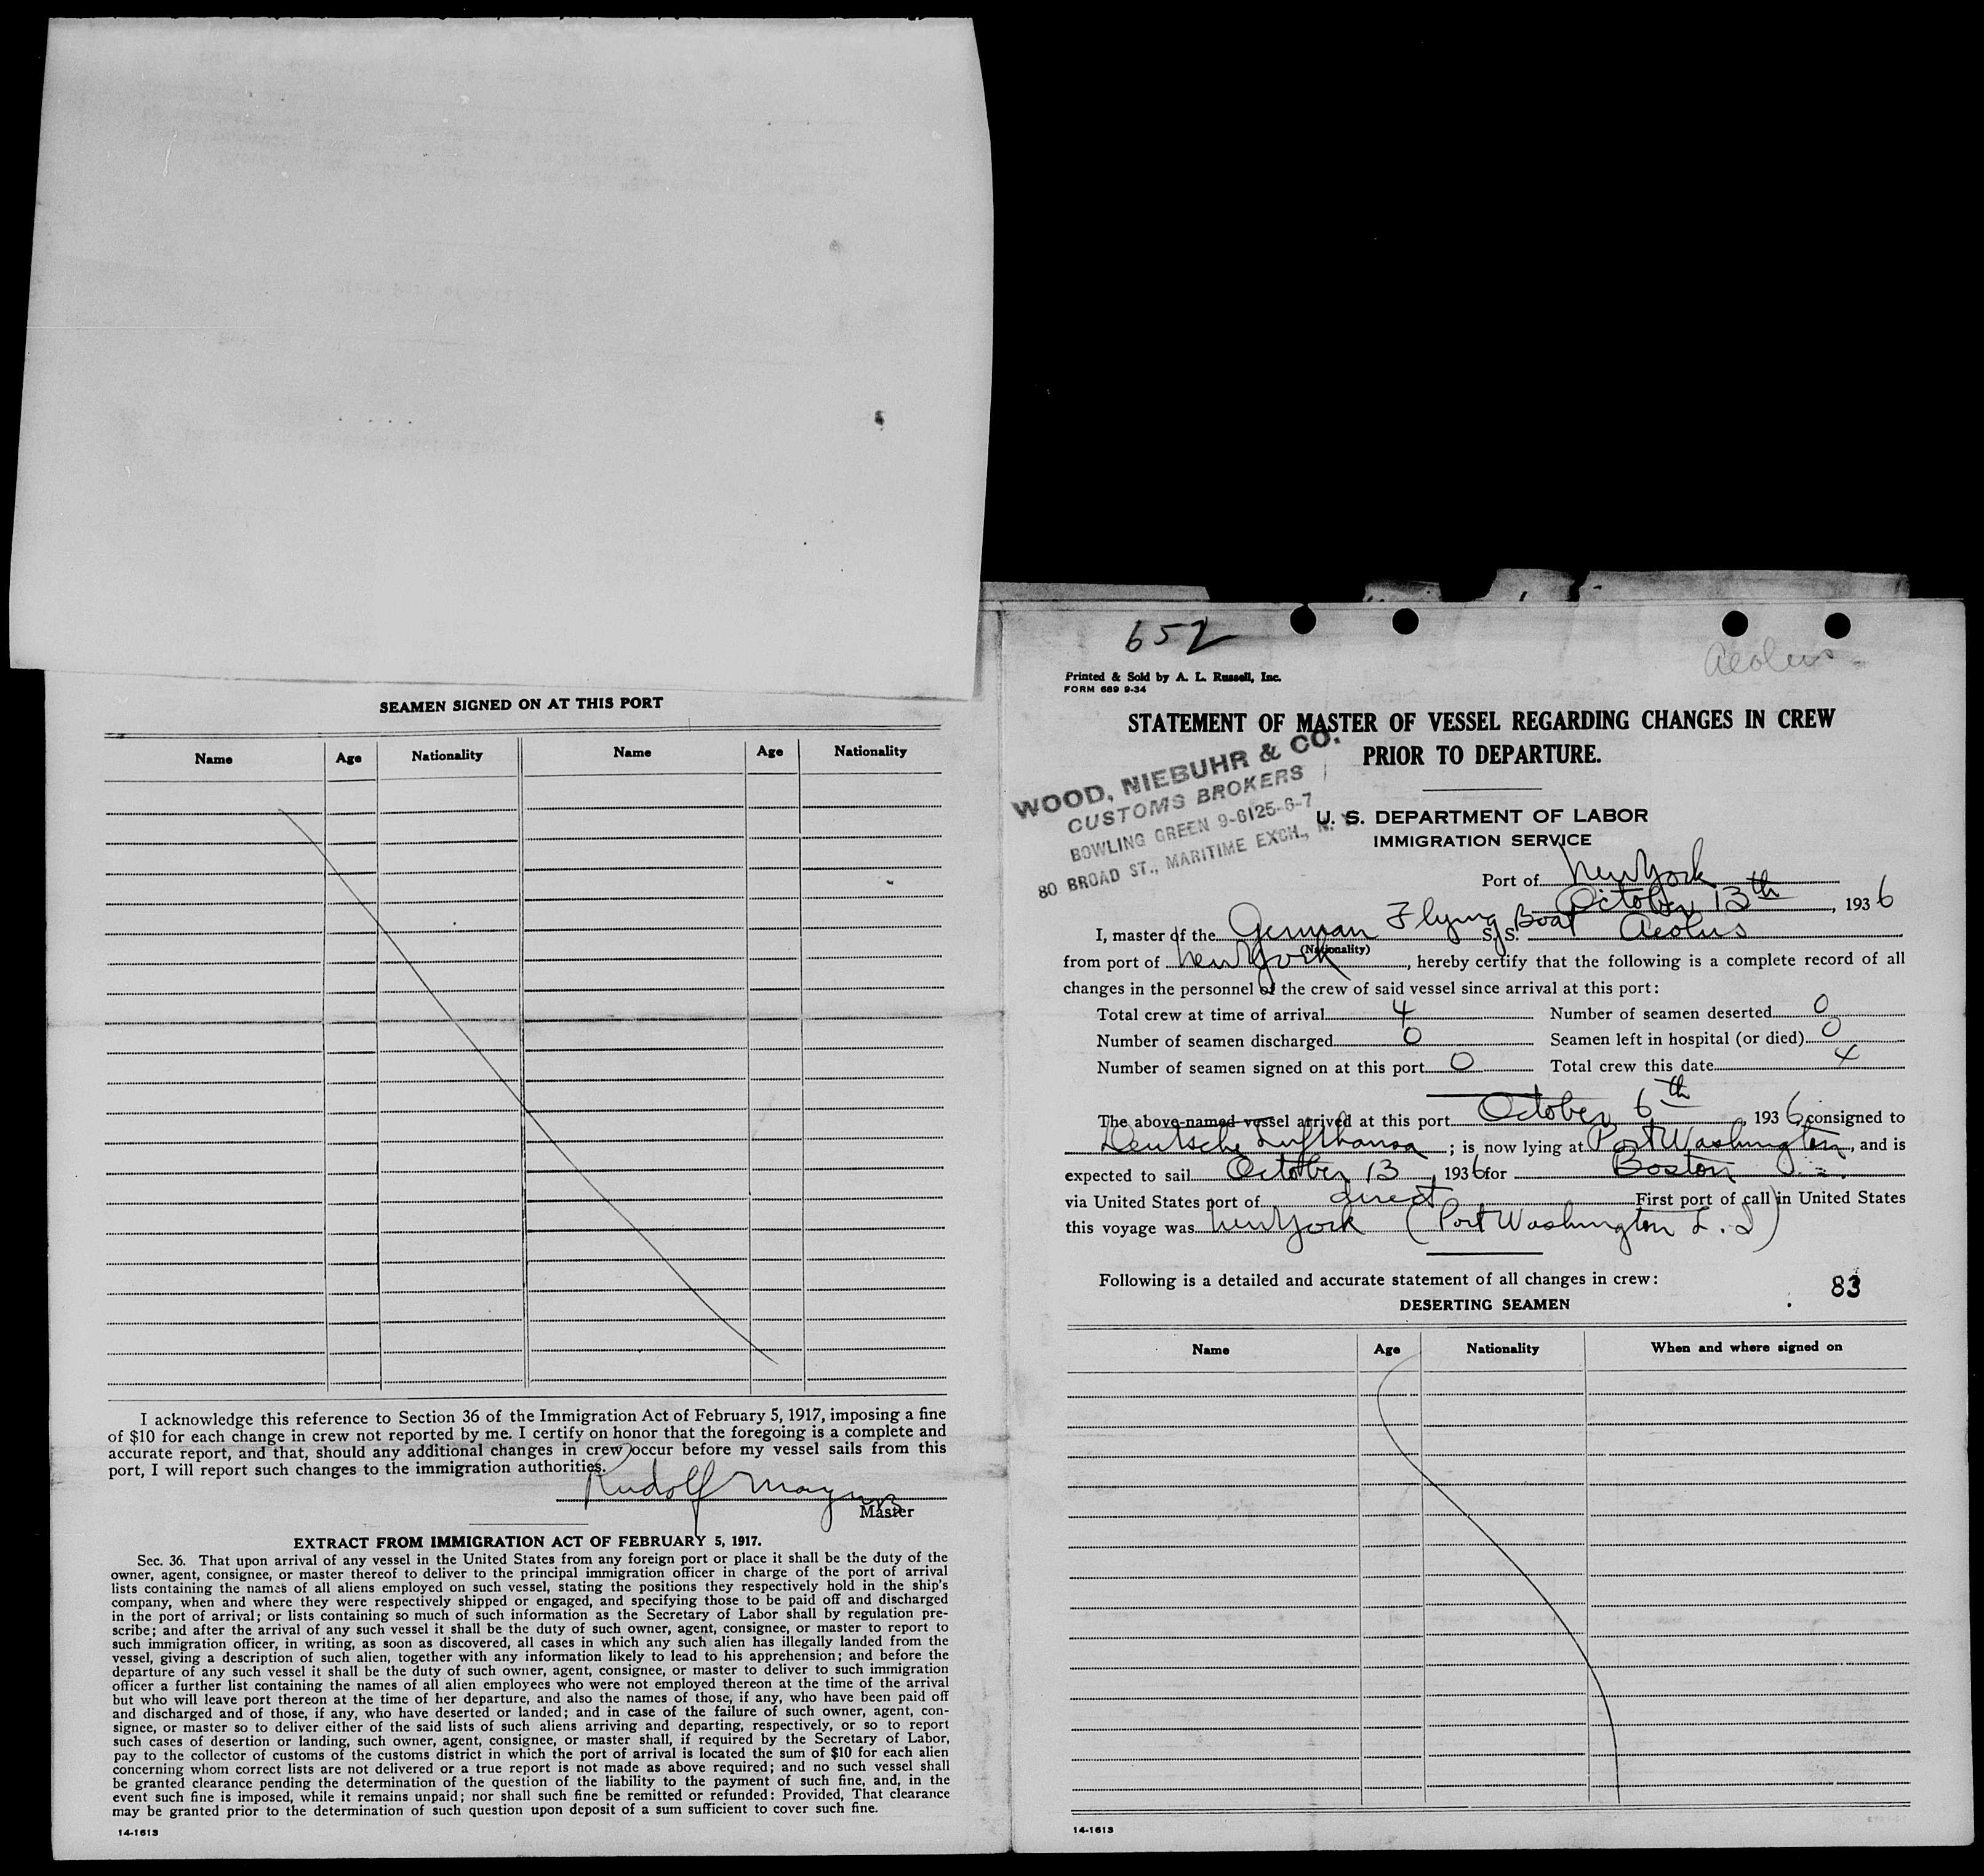 SEAMEN SIGNED ON AT THIS PORT
Name Age Nationality Name Age Nationality
I acknowledge this reference to Section 36 of the Immigration Act of February 5, 1917, imposing a fine
of $10 for each change in crew not reported by me. I certify on honor that the foregoing is a complete and
accurate report, and that, should any additional changes in crew occur before my vessel sails from this
port, I will report such changes to the immigration authorities.
Rudolf
Master
EXTRACT FROM IMMIGRATION ACT OF FEBRUARY 5, 1917.
Sec. 36. That upon arrival of any vessel in the United States from any foreign port or place it shall be the duty of the
owner, agent, consignee, or master thereof to deliver to the principal immigration officer in charge of the port of arrival
lists containing the names of all aliens employed on such vessel, stating the positions they respectively hold in the ship's
company, when and where they were respectively shipped or engaged, and specifying those to be paid off and discharged
in the port of arrival; or lists containing so much of such information as the Secretary of Labor shall by regulation pre-
scribe; and after the arrival of any such vessel it shall be the duty of such owner, agent, consignee, or master to report to
such immigration officer, in writing, as soon as discovered, all cases in which any such alien has illegally landed from the
vessel, giving a description of such alien, together with any information likely to lead to his apprehension; and before the
departure of any such vessel it shall be the duty of such owner, agent, consignee, or master to deliver to such immigration
officer a further list containing the names of all alien employees who were not employed thereon at the time of the arrival
but who will leave port thereon at the time of her departure, and also the names of those, if any, who have been paid off
and discharged and of those, if any, who have deserted or landed; and in case of the failure of such owner, agent, con-
signee, or master so to deliver either of the said lists of such aliens arriving and departing, respectively, or so to report
such cases of desertion or landing, such owner, agent, consignee, or master shall, if required by the Secretary of Labor,
pay to the collector of customs of the customs district in which the port of arrival is located the sum of $10 for each alien
concerning whom correct lists are not delivered or a true report is not made as above required; and no such vessel shall
be granted clearance pending the determination of the question of the liability to the payment of such fine, and, in the
event such fine is imposed, while it remains unpaid; nor shall such fine be remitted or refunded: Provided, That clearance
may be granted prior to the determination of such question upon deposit of a sum sufficient to cover such fine.
14-1613
652
Aeolus
Printed & Sold by A. L. Russell, Inc.
FORM 689 9-34
STATEMENT OF MASTER OF VESSEL REGARDING CHANGES IN CREW
PRIOR TO DEPARTURE.
WOOD, NIEBUHR & CO.
CUSTOMS BROKERS
BOWLING GREEN 9-6125-6-7
80 BROAD ST., MARITIME EXCH., N. Y.
U. S. DEPARTMENT OF LABOR
IMMIGRATION SERVICE
Port of New York
October 13th, 1936
I, master of the German Flying Boat S. S. Aeolus
(Nationality)
from port of New York, hereby certify that the following is a complete record of all
changes in the personnel of the crew of said vessel since arrival at this port:
Total crew at time of arrival 4 Number of seamen deserted 0
Number of seamen discharged 0 Seamen left in hospital (or died) 0
Number of seamen signed on at this port 0 Total crew this date 4
The above-named vessel arrived at this port October 6th, 1936, consigned to
Deutsche Lufthansa; is now lying at Port Washington, and is
expected to sail October 13, 1936 for Boston
via United States port of direct First port of call in United States
this voyage was New York (Port Washington L. I)
Following is a detailed and accurate statement of all changes in crew:
83
DESERTING SEAMEN
Name Age Nationality When and where signed on
14-1613